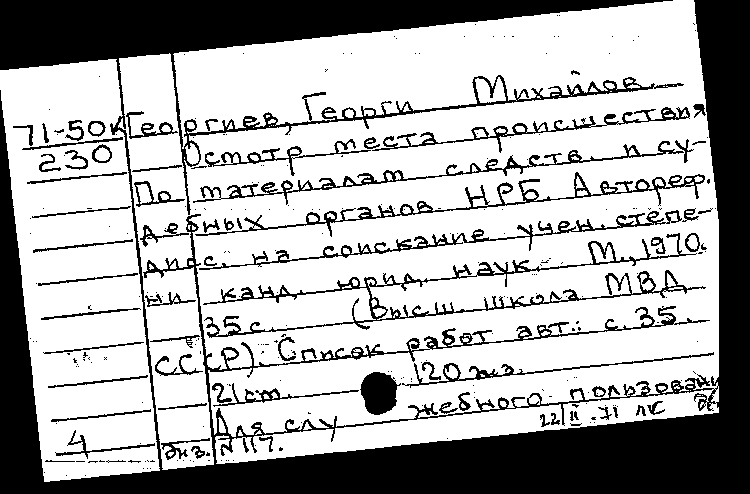 71-50к Георгиев, Георги Михайлов.
230 Осмотр места происшествия
По материалам следств. и су-
дебных органов НРБ. Автореф.
дисс. на соискание учен. степе-
ни канд. юрид. наук. М., 1970.
35 с. (Высш. школа МВД
СССР). Список работ авт.: с. 35.
21 см. 120 экз.
Для служебного пользовани
4 Экз. №117. 22/II.71 лк